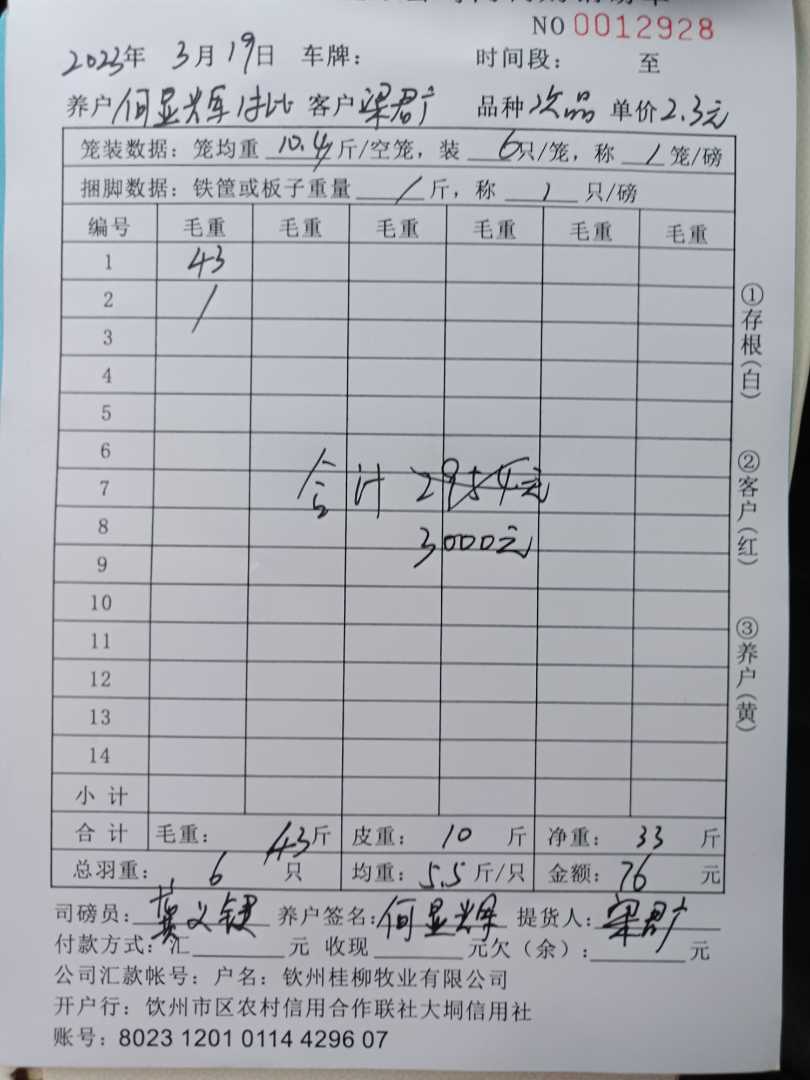 NO 0012928
2023年 3月19日 车牌： 时间段： 至
养户 何显辉 客户 梁君广 品种 次品 单价 2.3元
笼装数据：笼均重 10.4 斤/空笼，装 6 只/笼，称 1 笼/磅
捆脚数据：铁筐或板子重量 / 斤，称 / 只/磅
编号 毛重 毛重 毛重 毛重 毛重 毛重
1 43
2 /
3
4
5
6
7
8
9
10
11
12
13
14
合计 2954元
3000元
小计
合计 毛重： 43斤 皮重： 10 斤 净重： 33 斤
总羽重： 6 只 均重： 5.5 斤/只 金额： 76 元
司磅员： 义键 养户签名： 何显辉 提货人： 梁君广
付款方式：汇 元 收现 元欠（余）： 元
公司汇款帐号：户名：钦州桂柳牧业有限公司
开户行：饮州市区农村信用合作联社大垌信用社
账号：8023 1201 0114 4296 07
①存根（白）
②客户（红）
③养户（黄）